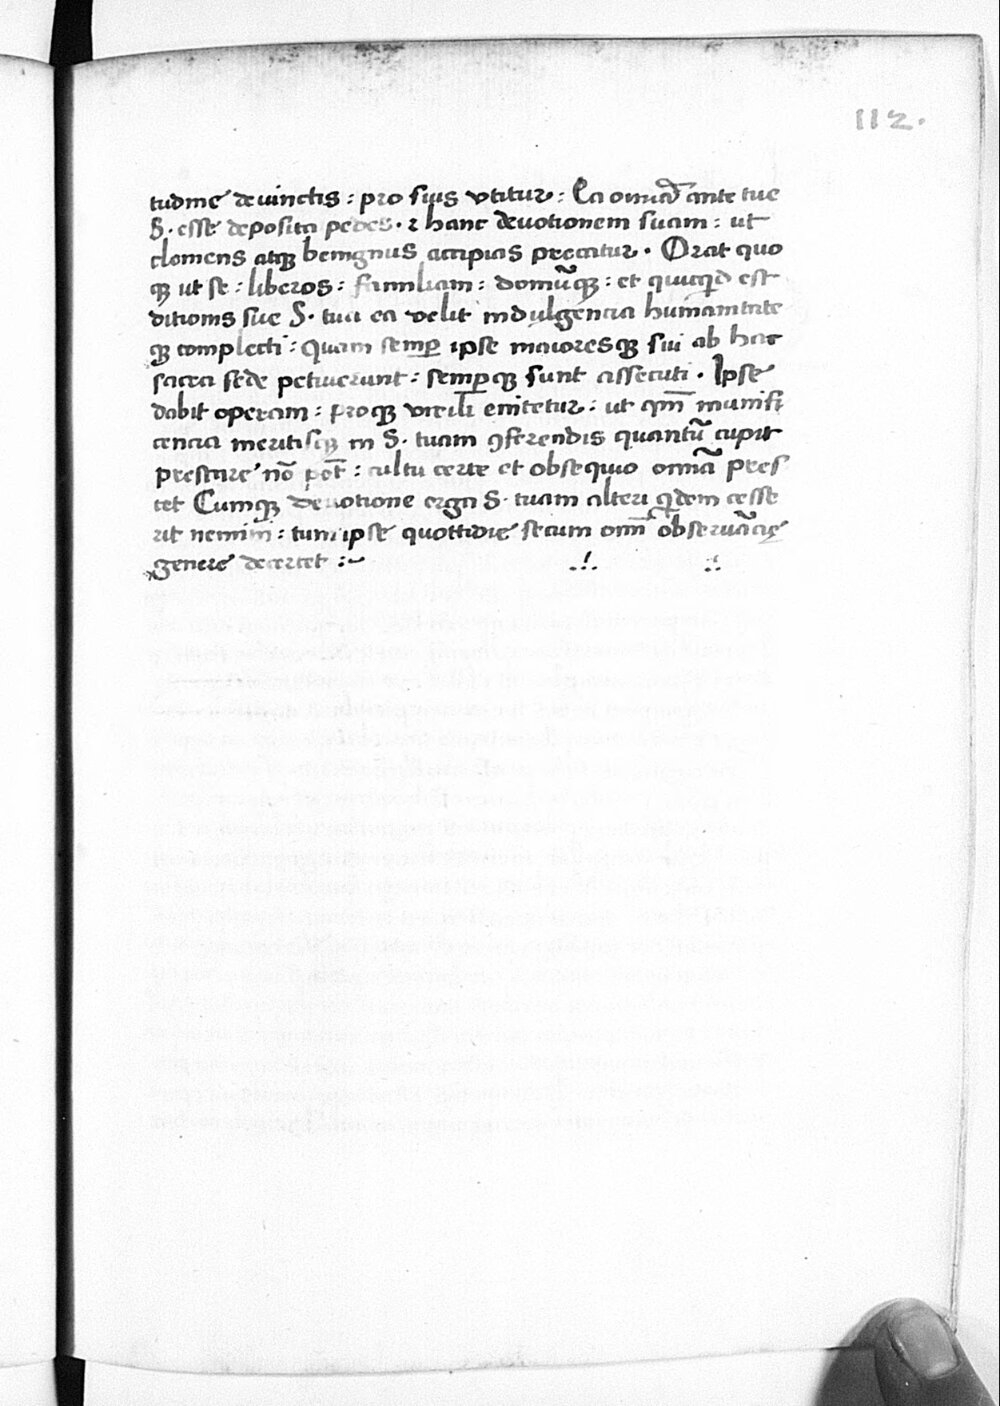 112.
tudine deuinctis : pro suis vtitur : Ea om̅ia ante tue
S. esse deposita pedes . ⁊ hanc deuotionem suam : ut
clemens atqꝫ benignus accipias precatur . Orat quo
qꝫ ut se : liberos : familiam : domu̅qꝫ : et quicqͥd est
ditionis sue S. tua ea velit indulgencia humanitate
qꝫ complecti : Quam semꝑ ipse maioresqꝫ sui ab hac
sacra sede petiuerunt : semꝑqꝫ sunt assecuti . Ipse
dabit operam : proqꝫ virili enitetur : ut qm̅ munifi
cencia meritisqꝫ in S. tuam ꝯferendis quantu̅ cupit
prestare no̅ pot̅ : cultu certe et obsequio omnia̅ pres
tet Cumqꝫ deuotione erga S. tuam alteri qͥdem cesse
rit nemini : tum ipse quottidie secum omi̅ obserua̅cię
genere decertet :~ .!. ∴